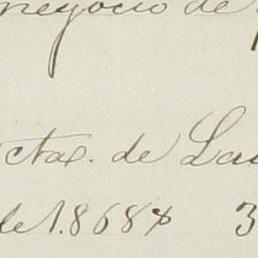 negocio de
ctax. de Lau
de 1.868 3